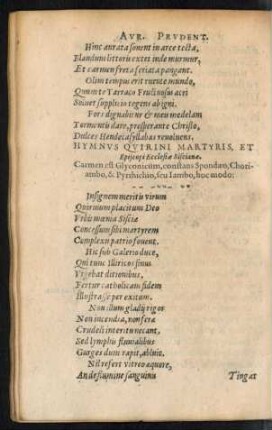 AVR. PRVDENT.
Hinc aurata sonent in arce tecta,
Blandum littoris extet inde murmur,
Et carmen freta feriata pangant.
Olim tempus erit ruente mundo,
Quum te Tarraco Fructuosus acri
Soluet supplicio tegens ab igni.
Fors dignabitur & meis medelam
Tormentis dare, prosperante Christo,
Dulces Hendecasyllabos reuoluens.
HYMNVS QVIRINI MARTYRIS, ET
Episcopi Ecclesiæ Siscianæ.
Carmen est Glyconicum, constans Spondæo, Choriambo, & Pyrrhichio, seu Iambo, hoc modo:
Insignem meriti virum
Quirinum placitum Deo
Vrbis mœnia Sisciæ
Concessum sibi martyrem
Complexu patrio fouent.
Hic sub Galerio duce,
Qui tunc Illyricos sinus
Vrgebat ditionibus,
Fertur catholicam fidem
Illustrasse per exitum.
Non illum gladij rigor
Non incendia, non feræ
Crudeli interitu necant,
Sed lymphis fluuialibus
Gurges dum rapit, abluit.
Nil refert vitreo æquore,
An de flumine sanguinis
Tingat